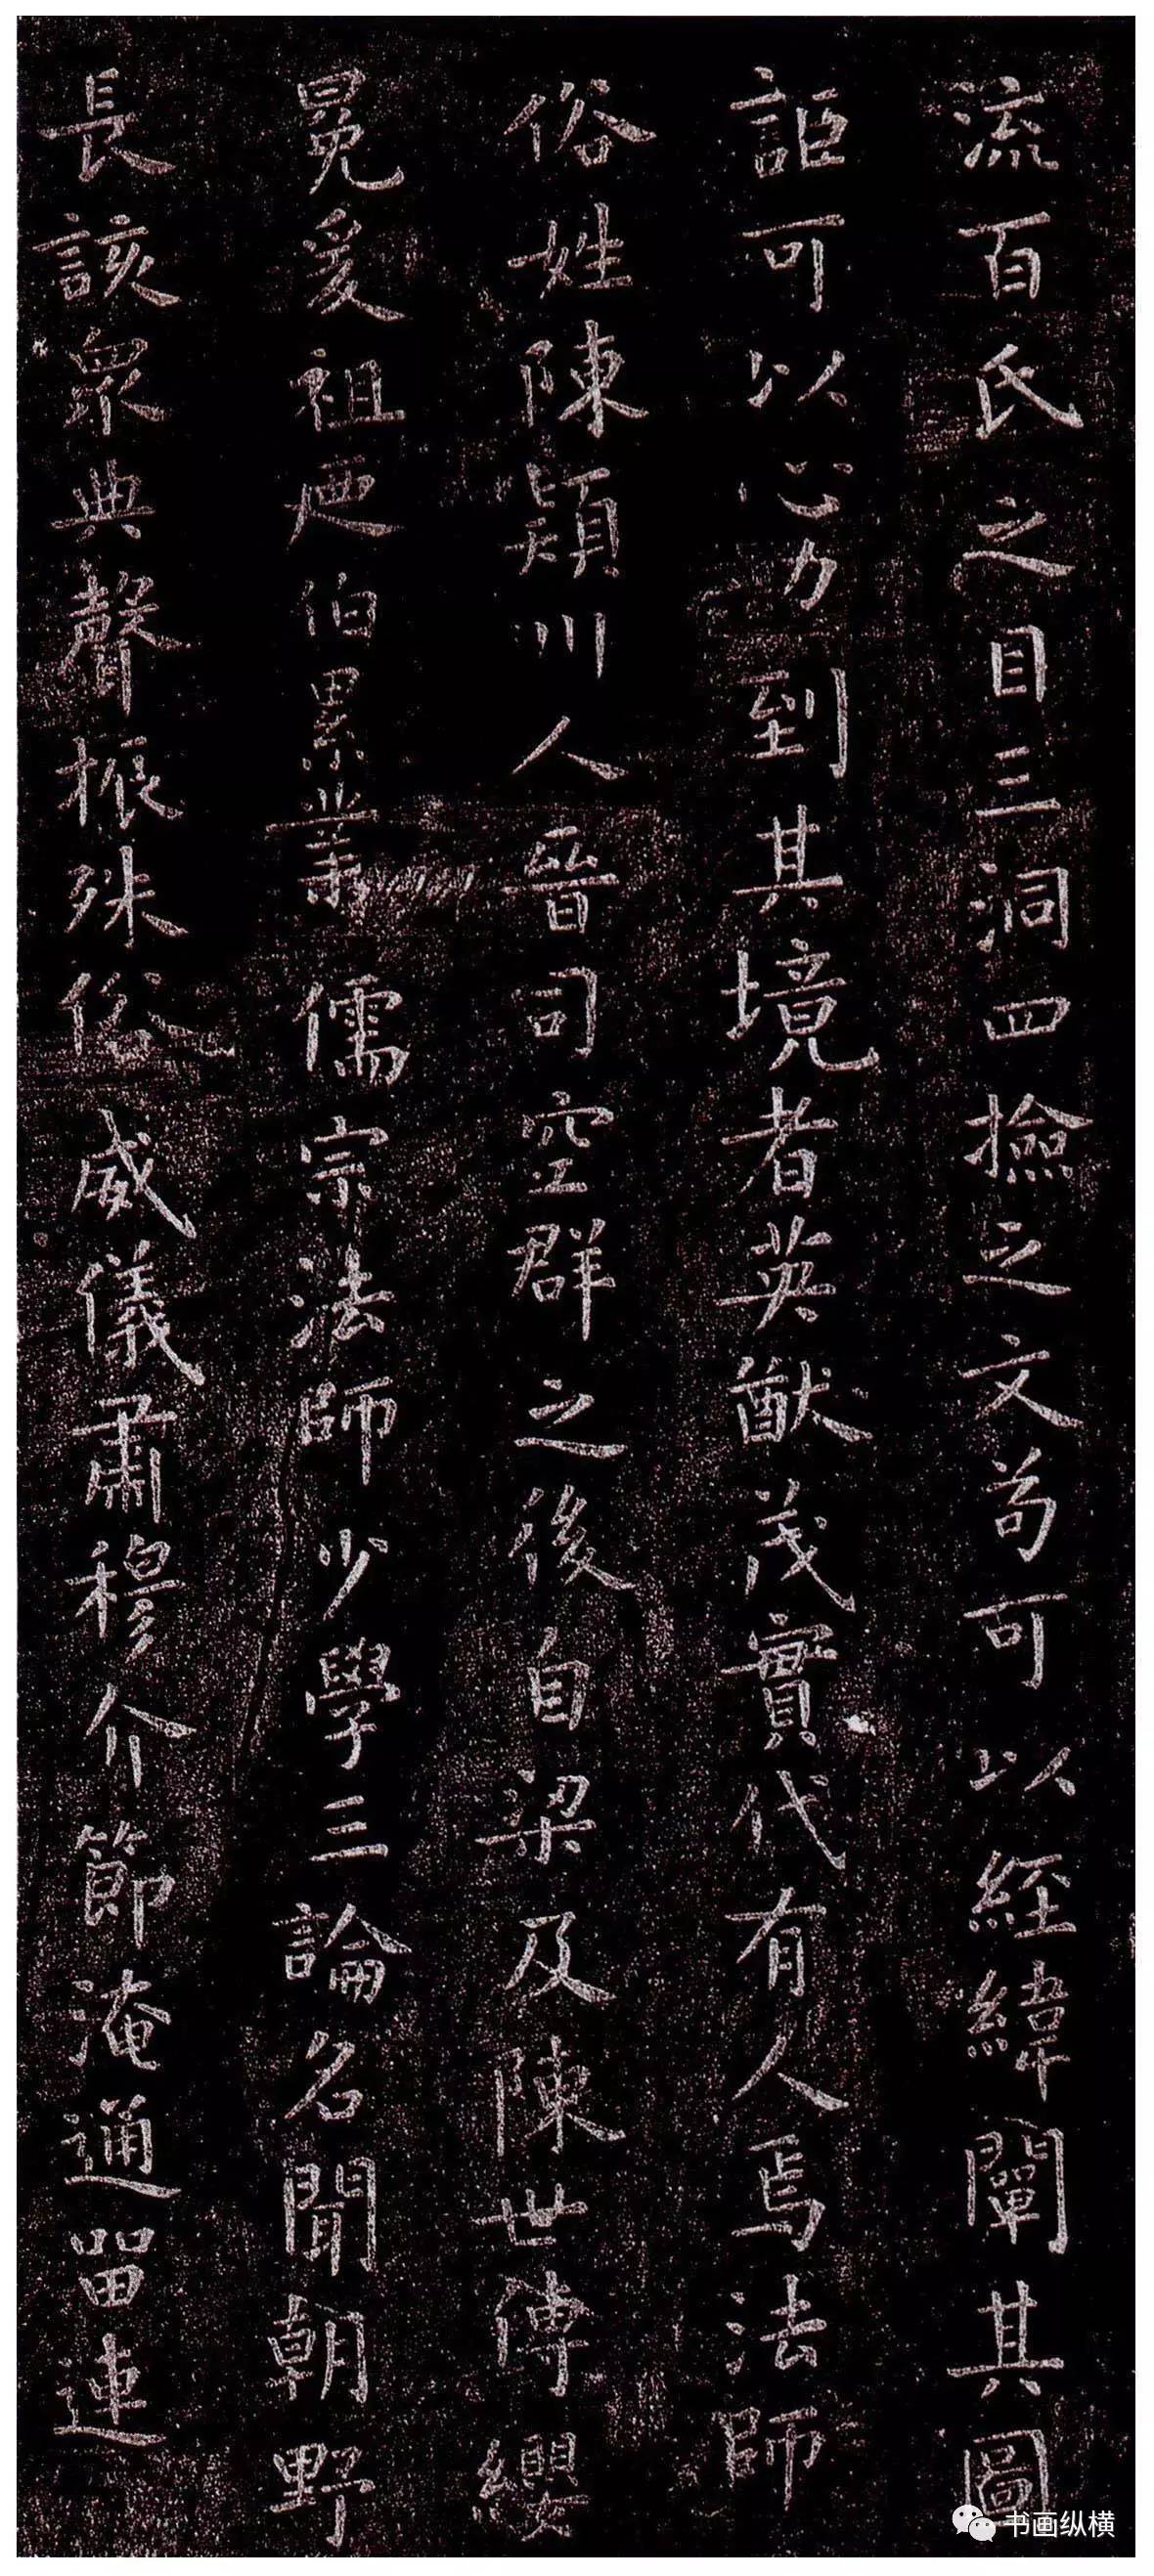 流百氏之目三洞四撿之文苟可以經緯闡其圖
詎可以心力到其境者英猷茂實代有人焉法師
俗姓陳穎川人晉司空群之後自梁及陳世傳纓
冕爰祖迺伯累業儒宗法師少學三論名聞朝野
長該衆典聲振殊俗威儀肅穆介節淹通留連
书画纵横